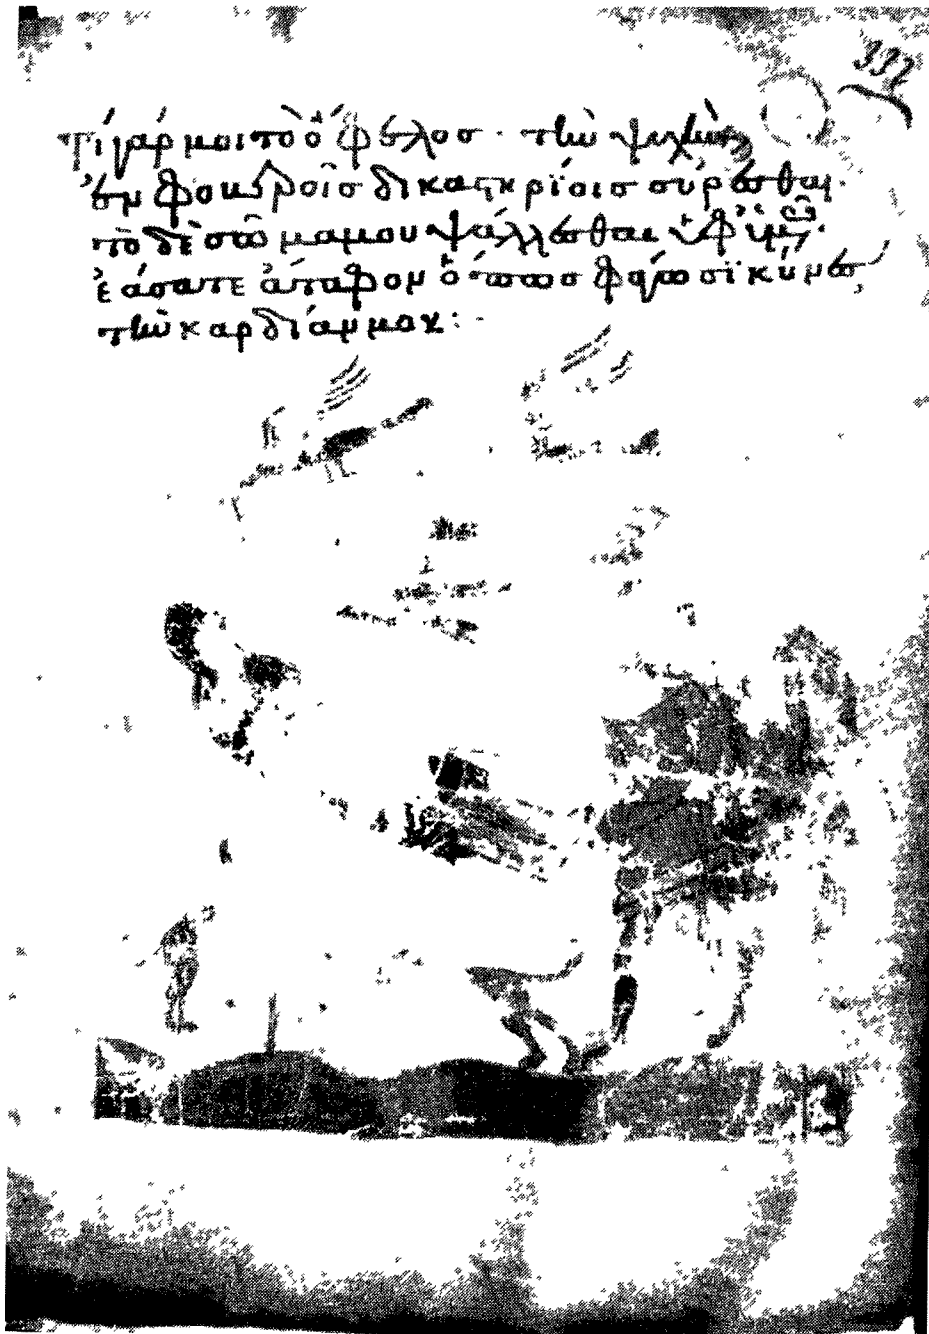 332
Τί γάρ μοι τὸ ὄφελος· τὴν ψυχὴν
ἐν φοικτροῖς δικαστηρίοις σύρεσθαι·
τὸ δὲ σῶμά μου ψάλλεσθαι ὑφ' ἡμῶν·
ἐάσατε ἄταφον ὅπως φάγωσϊ κύνες
τὴν καρδίαν μου:·